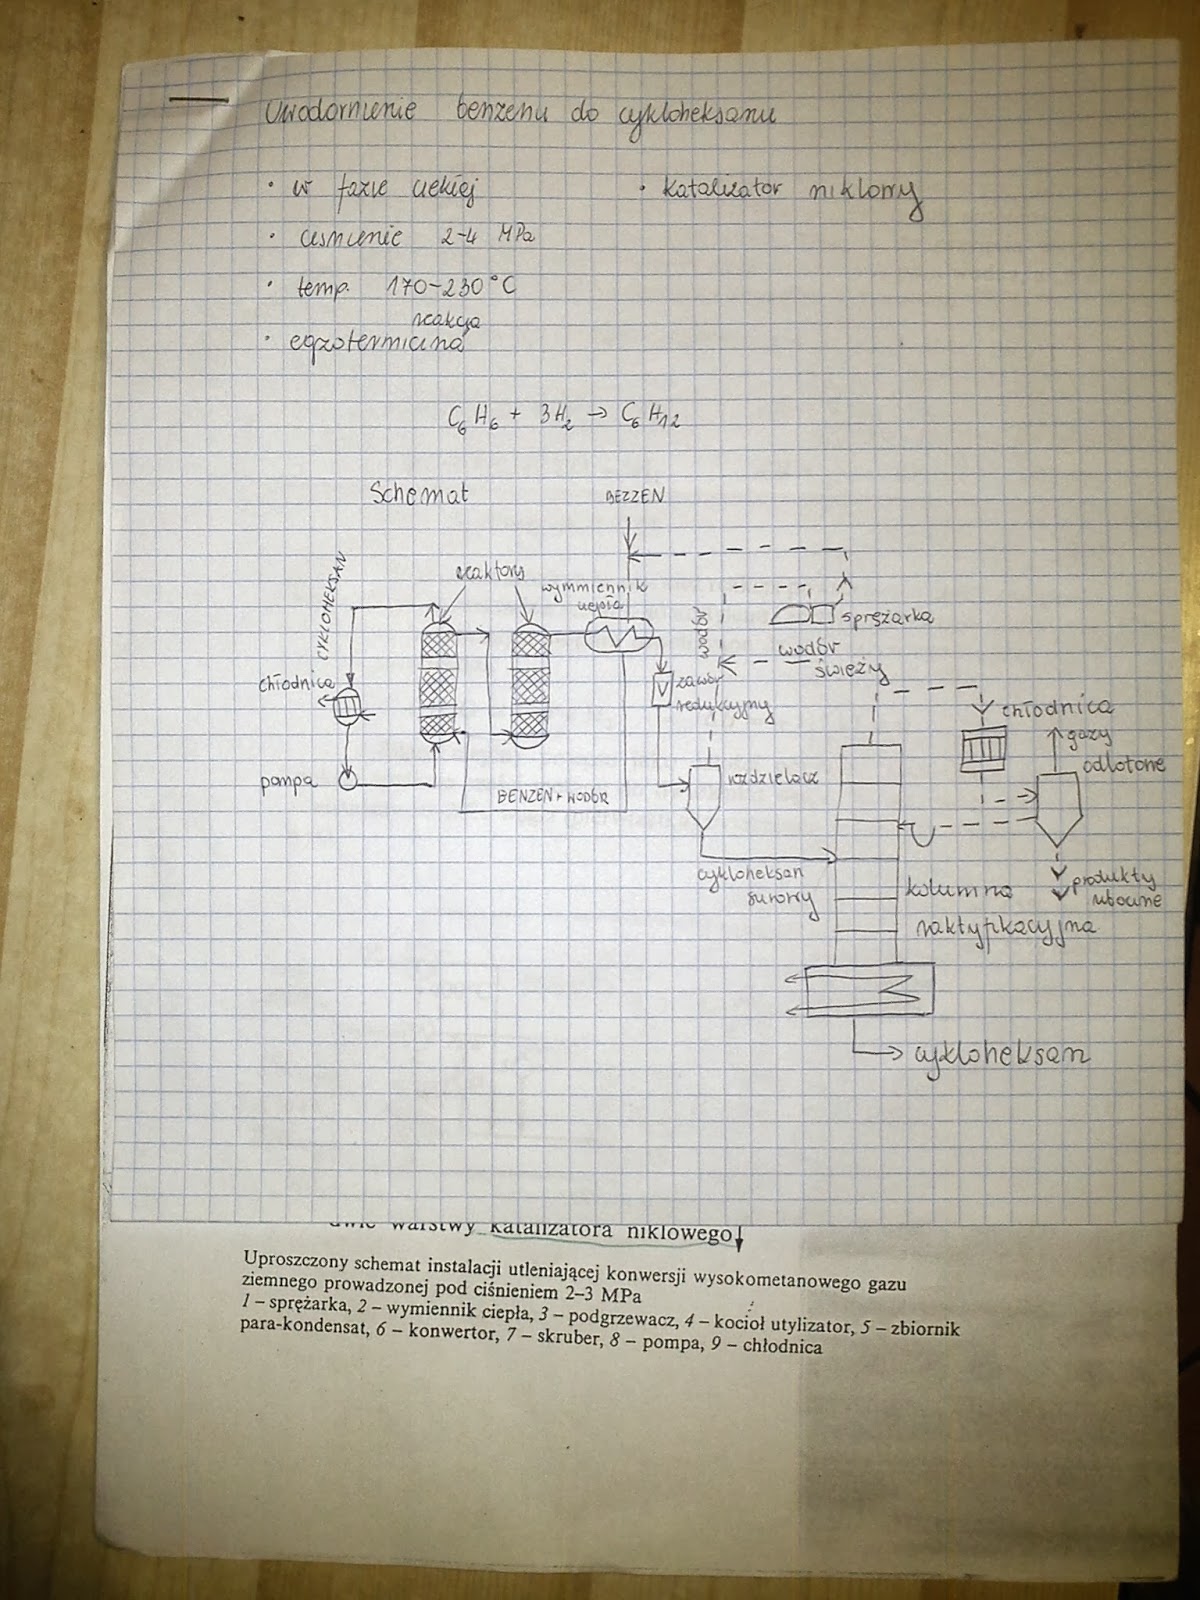 Uwodornienie benzenu do cykloheksanu
• w fazie ciekłej
• katalizator niklowy
• ciśnienie 2-4 MPa
• temp. 170-230°C
reakcja
• egzotermiczna
C6H6 + 3H2 → C6H12
Schemat
BEZZEN
CYKLOHEKSAN
reaktory
wymmiennik
ciepła
wodór
sprężarka
wodór
świeży
chłodnica
zawór
redukcyjny
chłodnica
gazy
odlotone
pompa
rozdzielacz
BENZEN + WODÓR
cykloheksan
surowy
kolumna
raktyfikacyjna
produkty
uboczne
cykloheksan
dwie warstwy katalizatora niklowego
Uproszczony schemat instalacji utleniającej konwersji wysokometanowego gazu
ziemnego prowadzonej pod ciśnieniem 2–3 MPa
1 – sprężarka, 2 – wymiennik ciepła, 3 – podgrzewacz, 4 – kocioł utylizator, 5 – zbiornik
para-kondensat, 6 – konwertor, 7 – skruber, 8 – pompa, 9 – chłodnica